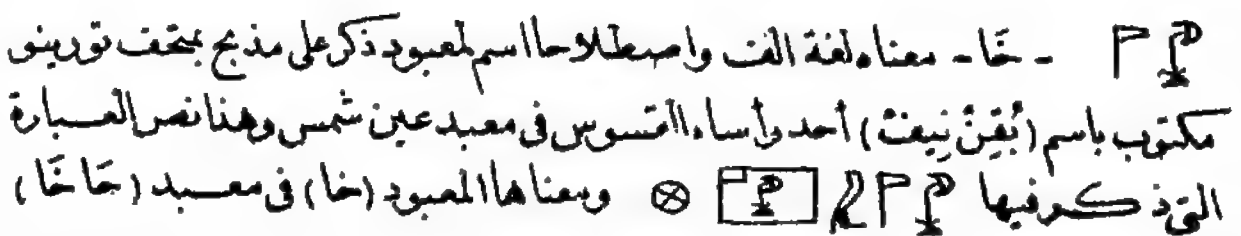 - خَا - معناه لغة الف واصطلاحا اسم لمعبود ذكر على مذبح بمتحف تورينو
مكتوب باسم (بُقِنْ نِيفْ) أحد رأساء القسوس فى معبد عين شمس وهذا نص العبارة
التى ذكر فيها ومعناها المعبود (خا) فى معبد (حَاخَا)